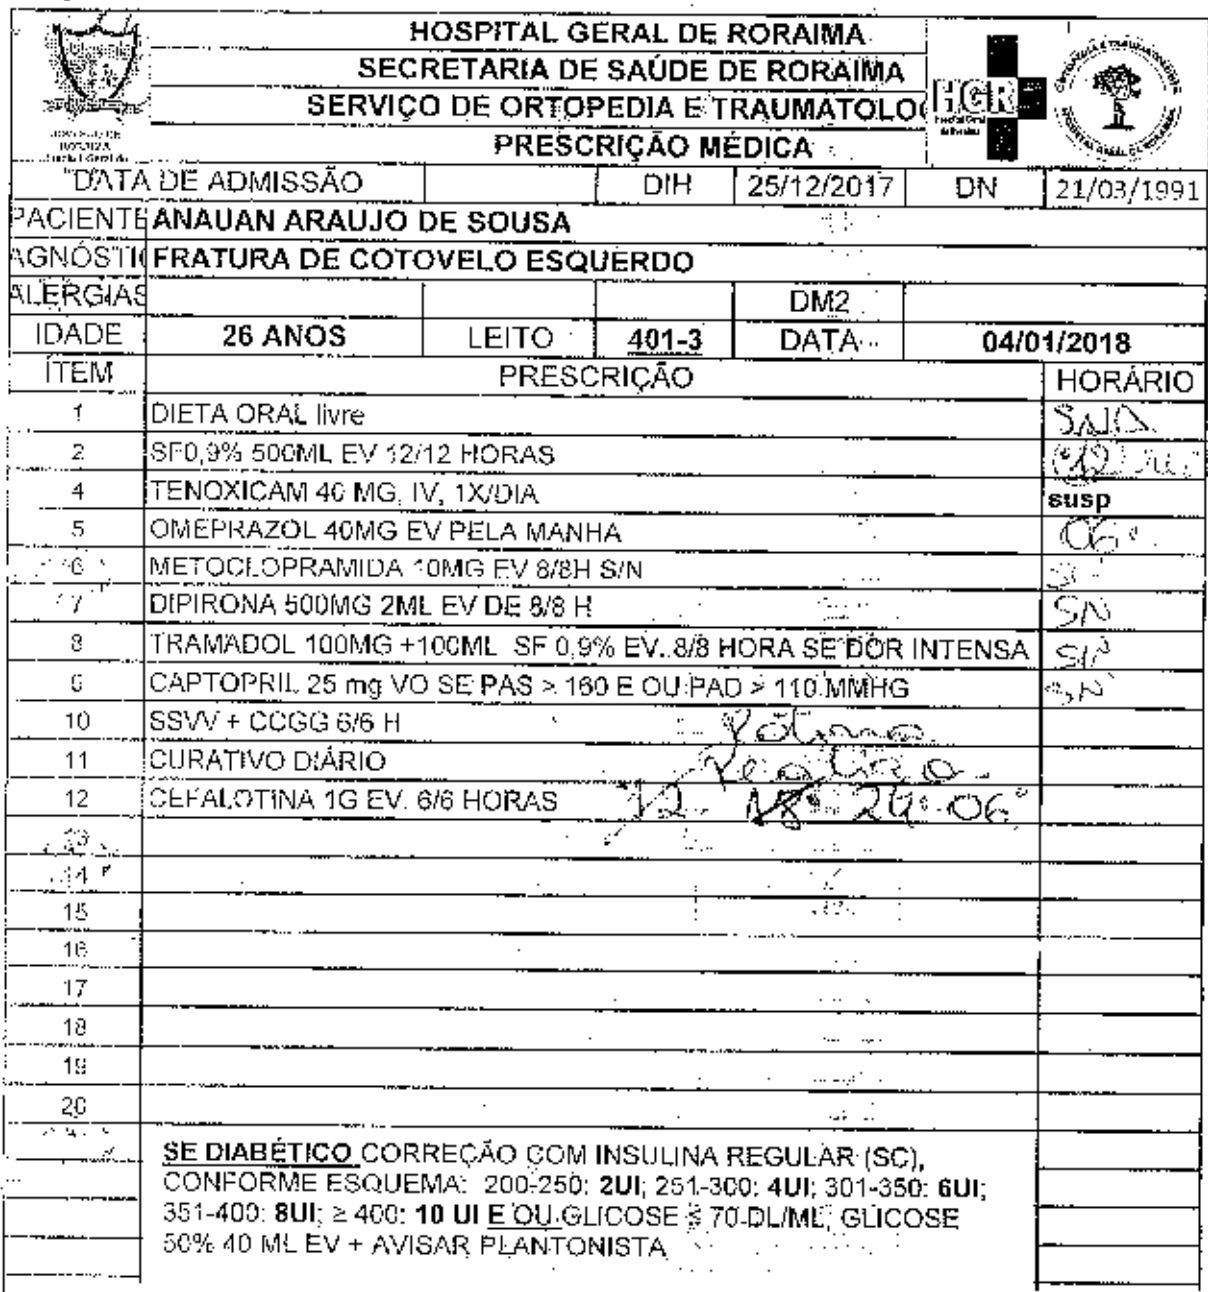 HOSPITAL GERAL DE RORAIMA
SECRETARIA DE SAÚDE DE RORAIMA
SERVIÇO DE ORTOPEDIA E TRAUMATOLO
HGR
PRESCRIÇÃO MÉDICA
DATA DE ADMISSÃO DIH 25/12/2017 DN 21/03/1991
PACIENTE ANAUAN ARAUJO DE SOUSA
AGNÓSTI FRATURA DE COTOVELO ESQUERDO
ALERGIAS DM2
IDADE 26 ANOS LEITO 401-3 DATA 04/01/2018
ÍTEM PRESCRIÇÃO HORÁRIO
1 DIETA ORAL livre SND
2 SF0,9% 500ML EV 12/12 HORAS
4 TENOXICAM 40 MG, IV, 1X/DIA susp
5 OMEPRAZOL 40MG EV PELA MANHA 06
6 METOCLOPRAMIDA 10MG EV 8/8H S/N
7 DIPIRONA 500MG 2ML EV DE 8/8 H SN
8 TRAMADOL 100MG +100ML SF 0,9% EV. 8/8 HORA SE DOR INTENSA S/N
CAPTOPRIL 25 mg VO SE PAS > 160 E OU PAD > 110 MMHG SN
10 SSVV + CCGG 6/6 H Rotina
11 CURATIVO DIÁRIO Realizado
12 CEFALOTINA 1G EV. 6/6 HORAS 12 18 24 06
14
15
16
17
18
19
20
SE DIABÉTICO CORREÇÃO COM INSULINA REGULAR (SC),
CONFORME ESQUEMA: 200-250: 2UI; 251-300: 4UI; 301-350: 6UI;
351-400: 8UI; ≥ 400: 10 UI E OU GLICOSE ≤ 70 DL/ML, GLICOSE
50% 40 ML EV + AVISAR PLANTONISTA